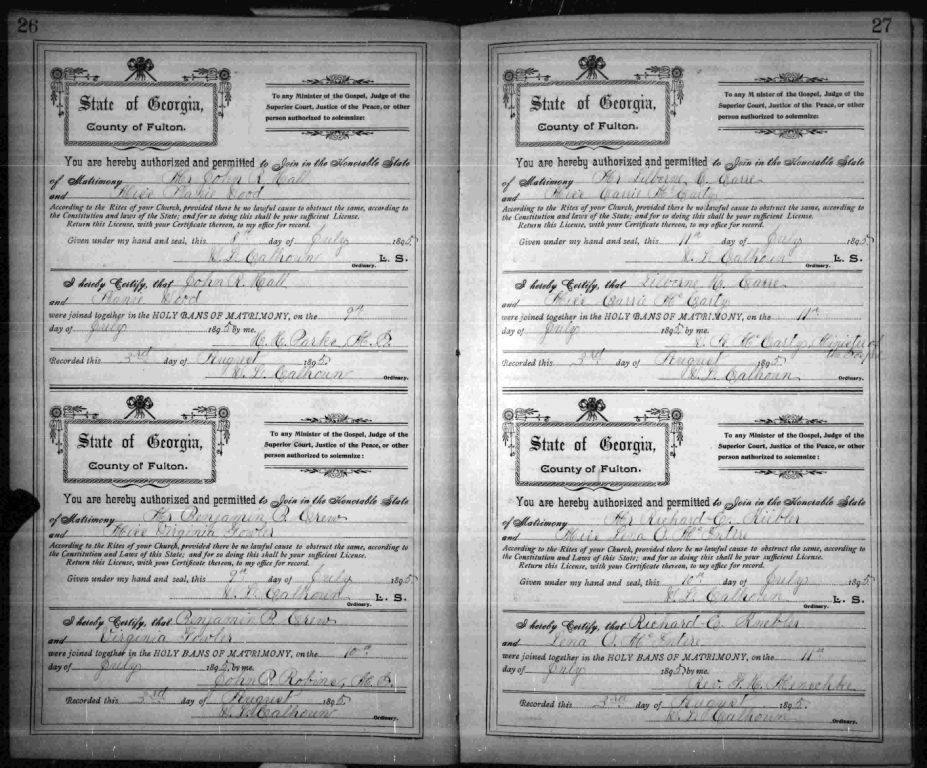 26
State of Georgia,
County of Fulton.
To any Minister of the Gospel, Judge of the
Superior Court, Justice of the Peace, or other
person authorized to solemnize:
You are hereby authorized and permitted to Join in the Honorable State
of Matrimony Mr John R. Hall
and Miss
According to the Rites of your Church, provided there be no lawful cause to obstruct the same, according to
the Constitution and laws of the State; and for so doing this shall be your sufficient License.
Return this License, with your Certificate thereon, to my office for record.
Given under my hand and seal, this 8th day of July 1895
W. L. Calhoun L. S.
Ordinary.
I hereby Certify, that John R. Hall
and
were joined together in the HOLY BANS OF MATRIMONY, on the 9th
day of July 1895 by me.
Recorded this 3rd day of August 1895
W. L. Calhoun Ordinary.
State of Georgia,
County of Fulton.
To any Minister of the Gospel, Judge of the
Superior Court, Justice of the Peace, or other
person authorized to solemnize:
You are hereby authorized and permitted to Join in the Honorable State
of Matrimony Mr Benjamin B. Crew
and Miss Virginia Fowler
According to the Rites of your Church, provided there be no lawful cause to obstruct the same, according to
the Constitution and Laws of this State; and for so doing this shall be your sufficient License.
Return this License, with your Certificate thereon, to my office for record.
Given under my hand and seal, this 9th day of July 1895
W. L. Calhoun L. S.
Ordinary.
I hereby Certify, that Benjamin B. Crew
and Virginia Fowler
were joined together in the HOLY BANS OF MATRIMONY, on the 10th
day of July 1895 by me.
John P. Robins,
Recorded this 3rd day of August 1895
W. L. Calhoun Ordinary.
27
State of Georgia,
County of Fulton.
To any Minister of the Gospel, Judge of the
Superior Court, Justice of the Peace, or other
person authorized to solemnize:
You are hereby authorized and permitted to Join in the Honorable State
of Matrimony Mr
and Miss Carrie McCarty
According to the Rites of your Church, provided there be no lawful cause to obstruct the same, according to
the Constitution and laws of the State; and for so doing this shall be your sufficient License.
Return this License, with your Certificate thereon, to my office for record.
Given under my hand and seal, this 11th day of July 1895
W. L. Calhoun L. S.
Ordinary.
I hereby Certify, that
and Miss Carrie McCarty
were joined together in the HOLY BANS OF MATRIMONY, on the 11th
day of July 1895 by me.
McCarty, Minister of
the Gospel
Recorded this 3rd day of August 1895
W. L. Calhoun Ordinary.
State of Georgia,
County of Fulton.
To any Minister of the Gospel, Judge of the
Superior Court, Justice of the Peace, or other
person authorized to solemnize:
You are hereby authorized and permitted to Join in the Honorable State
of Matrimony Mr Richard E.
and Miss Lena O. McEntire
According to the Rites of your Church, provided there be no lawful cause to obstruct the same, according to
the Constitution and Laws of this State; and for so doing this shall be your sufficient License.
Return this License, with your Certificate thereon, to my office for record.
Given under my hand and seal, this 10th day of July 1895
W. L. Calhoun L. S.
Ordinary.
I hereby Certify, that Richard E.
and Lena O. McEntire
were joined together in the HOLY BANS OF MATRIMONY, on the 11th
day of July 1895 by me.
Rev.
Recorded this 3rd day of August 1895
W. L. Calhoun Ordinary.